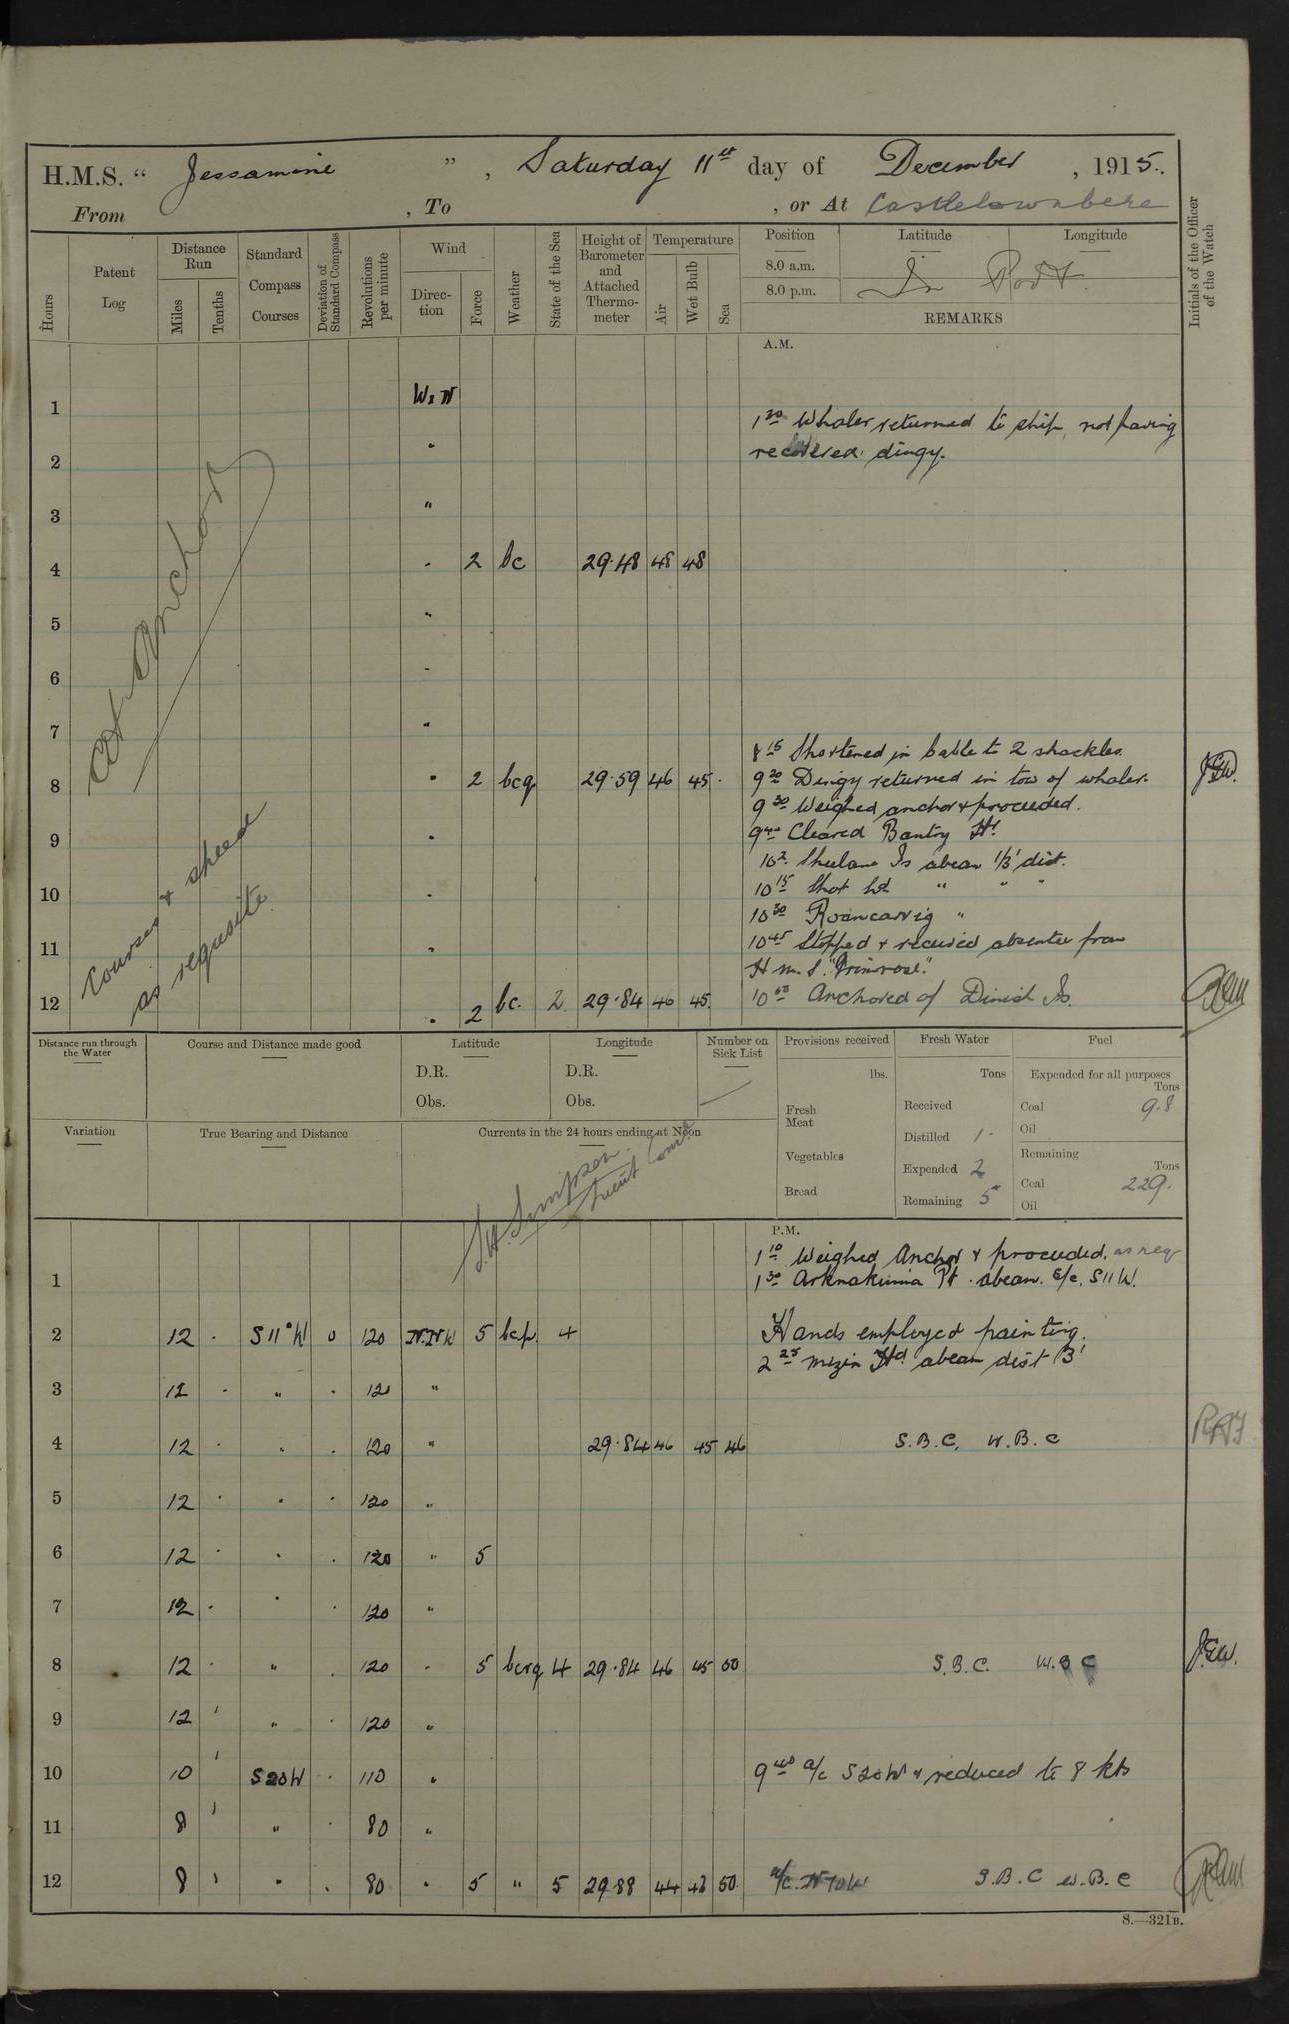 H.M.S. " Jessamine ", Saturday 11th day of December, 1915.
From , To , or At Castletownbere
Hours
Patent Log
Distance Run
Miles
Tenths
Standard Compass Courses
Deviation of Standard Compass
Revolutions per minute
Wind
Direction
Force
Weather
State of the Sea
Height of Barometer and Attached Thermometer
Temperature
Air
Wet Bulb
Sea
Position Latitude Longitude
8.0 a.m.
8.0 p.m.
In Port
REMARKS
Initials of the Officer of the Watch
A.M.
At Anchor
Courses & speed
as requisite
1 WxN
1 20 Whaler returned to ship, not having
2 "
recovered dingy.
3 "
4 " 2 bc 29.48 48 48
5 "
6 "
7 "
8 15 Shortened in cable to 2 shackles.
8 " 2 bcq 29.59 46 45
9 20 Dingy returned in tow of whaler.
9 30 Weighed anchor & proceeded.
9 "
9 40 Cleared Bantry Hr.
10 2 Sheelane Is abeam 1/3' dist.
10 "
10 15 Shot Hd " " "
10 30 Roancarrig "
11 "
10 45 Stopped & received absentee from
H.M.S. "Primrose."
12 " 2 bc. 2 29.84 46 45
10 58 Anchored of Dinish Is.
Distance run through the Water
Course and Distance made good
Latitude
D.R.
Obs.
Longitude
D.R.
Obs.
Number on Sick List
Provisions received
lbs.
Fresh Meat
Vegetables
Bread
Fresh Water
Tons
Received
Distilled 1
Expended 2
Remaining 5
Fuel
Expended for all purposes
Tons
Coal 9.8
Oil
Remaining
Tons
Coal 229.
Oil
Variation
True Bearing and Distance
Currents in the 24 hours ending at Noon
S.H. Simpson
Lieut Comr
P.M.
1 10 Weighed Anchor & proceeded. as req
1
1 30 Pt. abeam. S/c. S11W.
2 12 . S11°W 0 120 N.NW 5 bcp 4 Hands employed painting.
2 25 Mizin Hd abeam dist 3'
3 12 . " . 120 "
4 12 . " . 120 " 29.84 46 45 46 S.B.C. W.B.C
5 12 . " . 120 "
6 12 . " . 120 " 5
7 12 . " . 120 "
8 12 . " . 120 " 5 bcrq 4 29.84 46 45 50 S.B.C. W.B.C J.E.W.
9 12 ' " . 120 "
10 10 ' S20W . 110 " 9 40 a/c S20W & reduced to 8 kts
11 8 ' " . 80 "
12 8 ' " . 80 " 5 " 5 29.88 44 43 50 a/c. N70W S.B.C W.B.C
S.—321B.